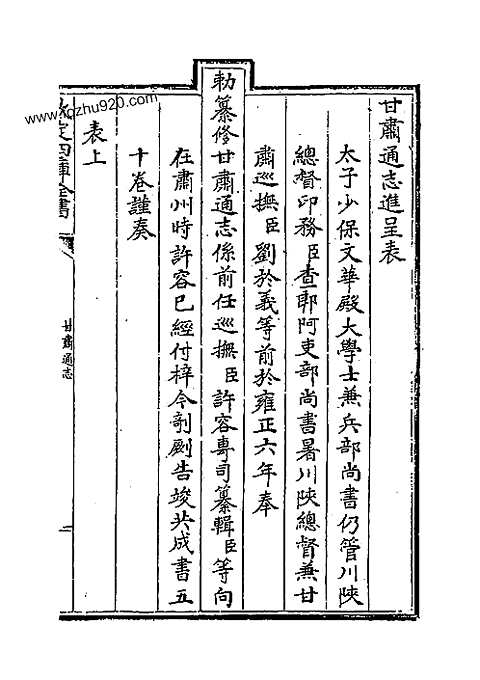 甘肅通志進呈表
太子少保文華殿大學士兼兵部尚書仍管川陝
總督印務臣查郎阿吏部尚書署川陝總督兼甘
肅巡撫臣劉於義等前於雍正六年奉
勅纂修甘肅通志係前任巡撫臣許容專司纂輯臣等向
在肅州時許容已經付梓今剞劂告竣共成書五
十卷謹奏
表上
欽定四庫全書
甘肅通志
一
www.qzhu920.com